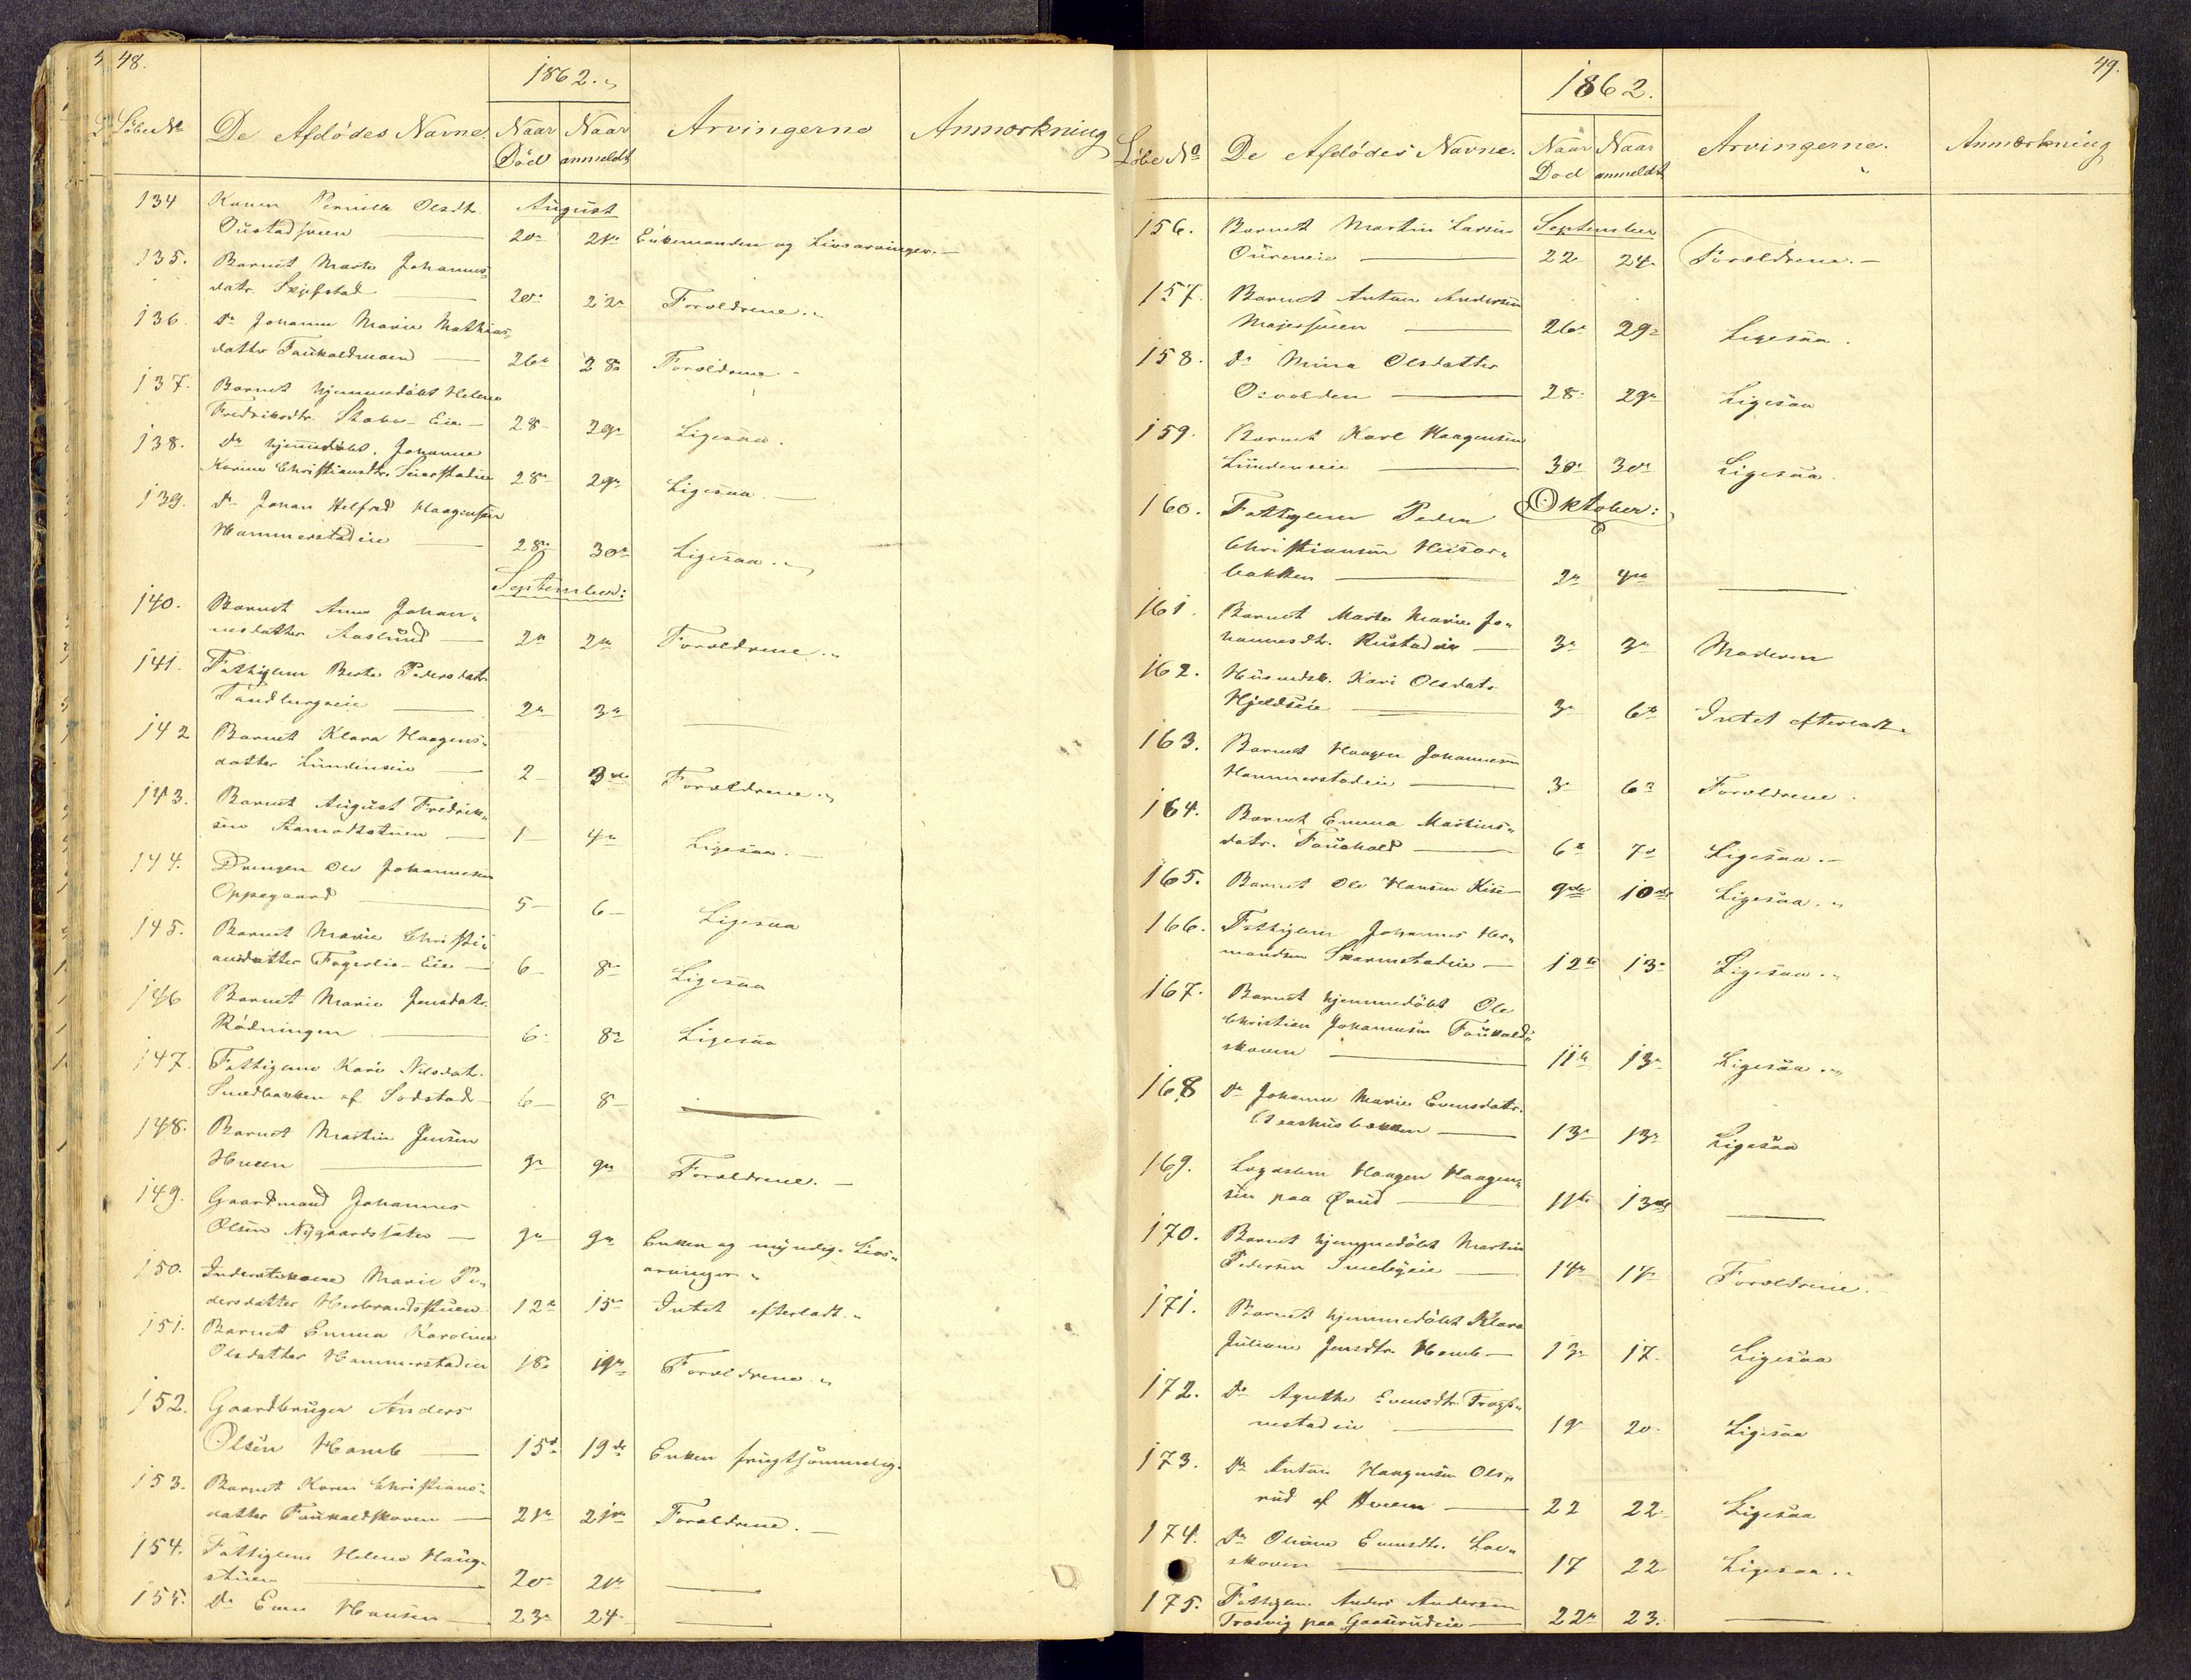 48.
1862.
Löbe No De Afdödes Navne. Naar Död Naar anmeldt Arvingerne Anmærkning
134 Karen Pernille Olsdtr. August
20de 21de Enkemanden og Livsarvinger.—
135. Barnet Marte Johannes„
datr. — 20de 22de Forældrene.„
136. Do Johanne Marie Mathias„
datter Faukaldmoen — 26de 28de Forældrene.
137. Barnet hjemmedöbt Helene
Fredriksdtr. Stabo-Eie — 28 29de Ligesaa.
138. Do hjemmedöbt. Johanne
Karine Christiansdtr. 28de 29de Ligesaa.—
139. Do Johan Haagensen
Hammerstadeie — 28de 30te Ligesaa.„
September:
140. Barnet Anne Johan„
nesdatter Aaslund — 2de 2den Forældrene.„
141. Fattiglem Berte Pedersdatr.
— 2de 3de —
142 Barnet Klara Haagens„
datter Lundenseie — 2 3die Forældrene.„
143. Barnet August Fredrik„
sen Aamodtstuen — 1 4de Ligesaa.—
144. Drengen Ole Johannesen
Oppegaard — 5 6 Ligesaa
145. Barnet Marie Christi„
ansdatter Fagerlie-Eie — 6 8de Ligesaa
146 Barnet Marie Jensdatr.
Rödningen — 6 8de Ligesaa
147. Fattiglem Kari Nilsdatr.
Smedbakken af Sodstad 6 8 —
148. Barnet Martin Jensen
Hveen — 9de 9de Forældrene.—
149. Gaardmand Johannes
Olsen Nygaardsæter — 9de 9de Enken og myndige Livs„
arvinger„
150. Inderstekone Marie Pe„
dersdatter Herbrandsstuen 12te 15de Intet efterladt.„
151. Barnet Emma Karoline
Olsdatter Hammerstadeie 18de 19de Forældrene.„
152. Gaardbruger Anders
Olsen Hcomb — 15de 19de Enken frugtsommelig.
153. Barnet Karen Christians„
datter Faukaldskoven — 21de 21de Forældrene.—
154. Fattiglem Helene Haug„
stuen — 20de 21de —
155. Do Even Hansen — 23de 24 —
49.
1862.
Löbe No De Afdödes Navne. Naar Död Naar anmeldt Arvingerne. Anmærkning
156. Barnet Martin Larsen September
— 22 24de Forældrene.—
157. Barnet Anton Andersen
— 26de 29de Ligesaa.
158. Do Mina Olsdatter
Osvolden — 28 29de Ligesaa
159. Barnet Karl Haagensen
Lundenseie — 30te 30te Ligesaa.
160. Fattiglem Peder Oktober:
Christiansen
bakken — 2de 4de —
161. Barnet Marte Marie Jo„
hannesdtr. Rustadeie — 3de 3de Moderen
162. Husmdsk. Kari Olsdatr.
Hjeldseie — 3de 6te Intet efterladt.
163. Barnet Haagen Johannesen
Hammerstadeie — 3de 6te Forældrene.
164. Barnet Emma Martins„
datr. Faukald — 6te 7de Ligesaa.—
165. Barnet Ole Hansen Kise 9de 10de Ligesaa.„
166. Fattiglem Johannes Her„
mandsen Skarnstadeie — 12te 13de Ligesaa.„
167. Barnet hjemmedöbt Ole
Christian Johannesen Faukald„
skoven — 11te 13de Ligesaa.„
168 Do Johanne Marie Evensdatr.
— 13de 13de Ligesaa
169. Lægdslem Haagen Haagen„
sen paa — 11te 13de —
170. Barnet hjemmedöbt Martin
Pedersen Smebyeie — 14de 17 Forældrene.
171. Barnet hjemmedöbt Klara
Juliane Jensdtr. Homb — 13de 17 Ligesaa
172. Do Agnethe Evensdtr.
— 19 20 Ligesaa
173. Do Anton Haagensen Ols„
rud af Hveem — 22 22 Ligesaa
174. Do Oliane Evensdtr. Lau„
skoven — 17 22 Ligesaa.„
175. Fattiglem Anders Andersen
Trosvig paa Gaaserudeie — 22de 23 —